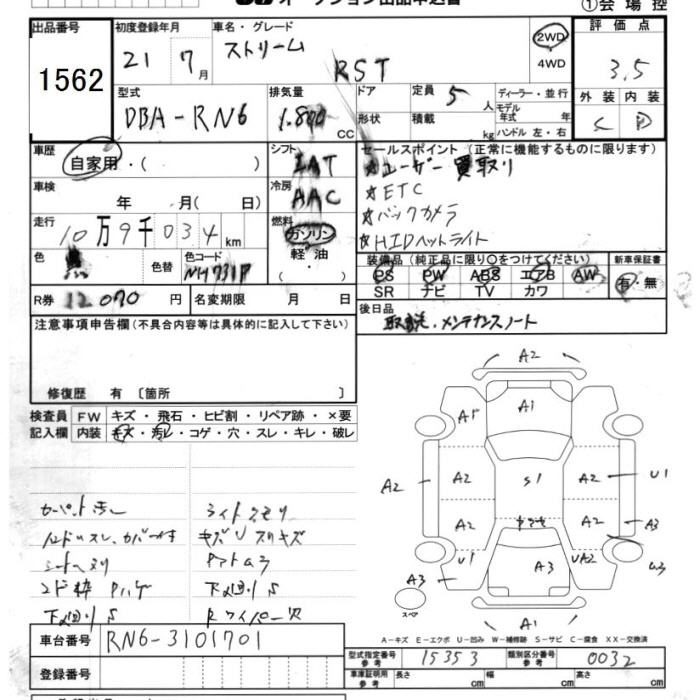 ①会場控
出品番号
1562
初度登録年月
21 7月
車名・グレード
ストリーム
RST
2WD
4WD
評価点
3.5
外装 内装
C D
型式
DBA-RN6
排気量
1.800 cc
ドア
形状
定員 5 人
積載 kg
ディーラー・並行
モデル年式 年
ハンドル 左・右
車歴
自家用・( )
シフト
IAT
車検
年 月( 日)
冷房
AAC
走行
10万9千034 km
燃料
ガソリン
軽油
・( )
色
黒
色替
色コード
NH731P
R券 12070 円
名変期限 月 日
セールスポイント (正常に機能するものに限ります)
☆ユーザー買取り
☆ETC
☆バックカメラ
☆HIDヘットライト
装備品 (純正品に限り○をつけてください)
新車保証書
PS PW ABS エアB AW
SR ナビ TV カワ
有・無
後日品
取説・メンテナンスノート
注意事項申告欄(不具合内容等は具体的に記入して下さい)
修復歴 有 〔箇所 〕
検査員記入欄
FW キズ・飛石・ヒビ割・リペア跡・×要
内装 キズ・汚レ・コゲ・穴・スレ・キレ・破レ
カーペット汚レ
ライトクモリ
キズUスリキズ
下回りS
下回りS
Rワイパー欠
A2
A1
A1
A2
A2
S1
A2
U1
A2
A2
A3
U1
A3
UA2
A3
スペア
A1
A-キズ E-エクボ U-凹み W-補修跡 S-サビ C-腐食 XX-交換済
車台番号 RN6-3101701
登録番号
型式指定番号 参考 15353
類別区分番号 参考 0032
車庫証明用 参考 長さ cm 幅 cm 高さ cm